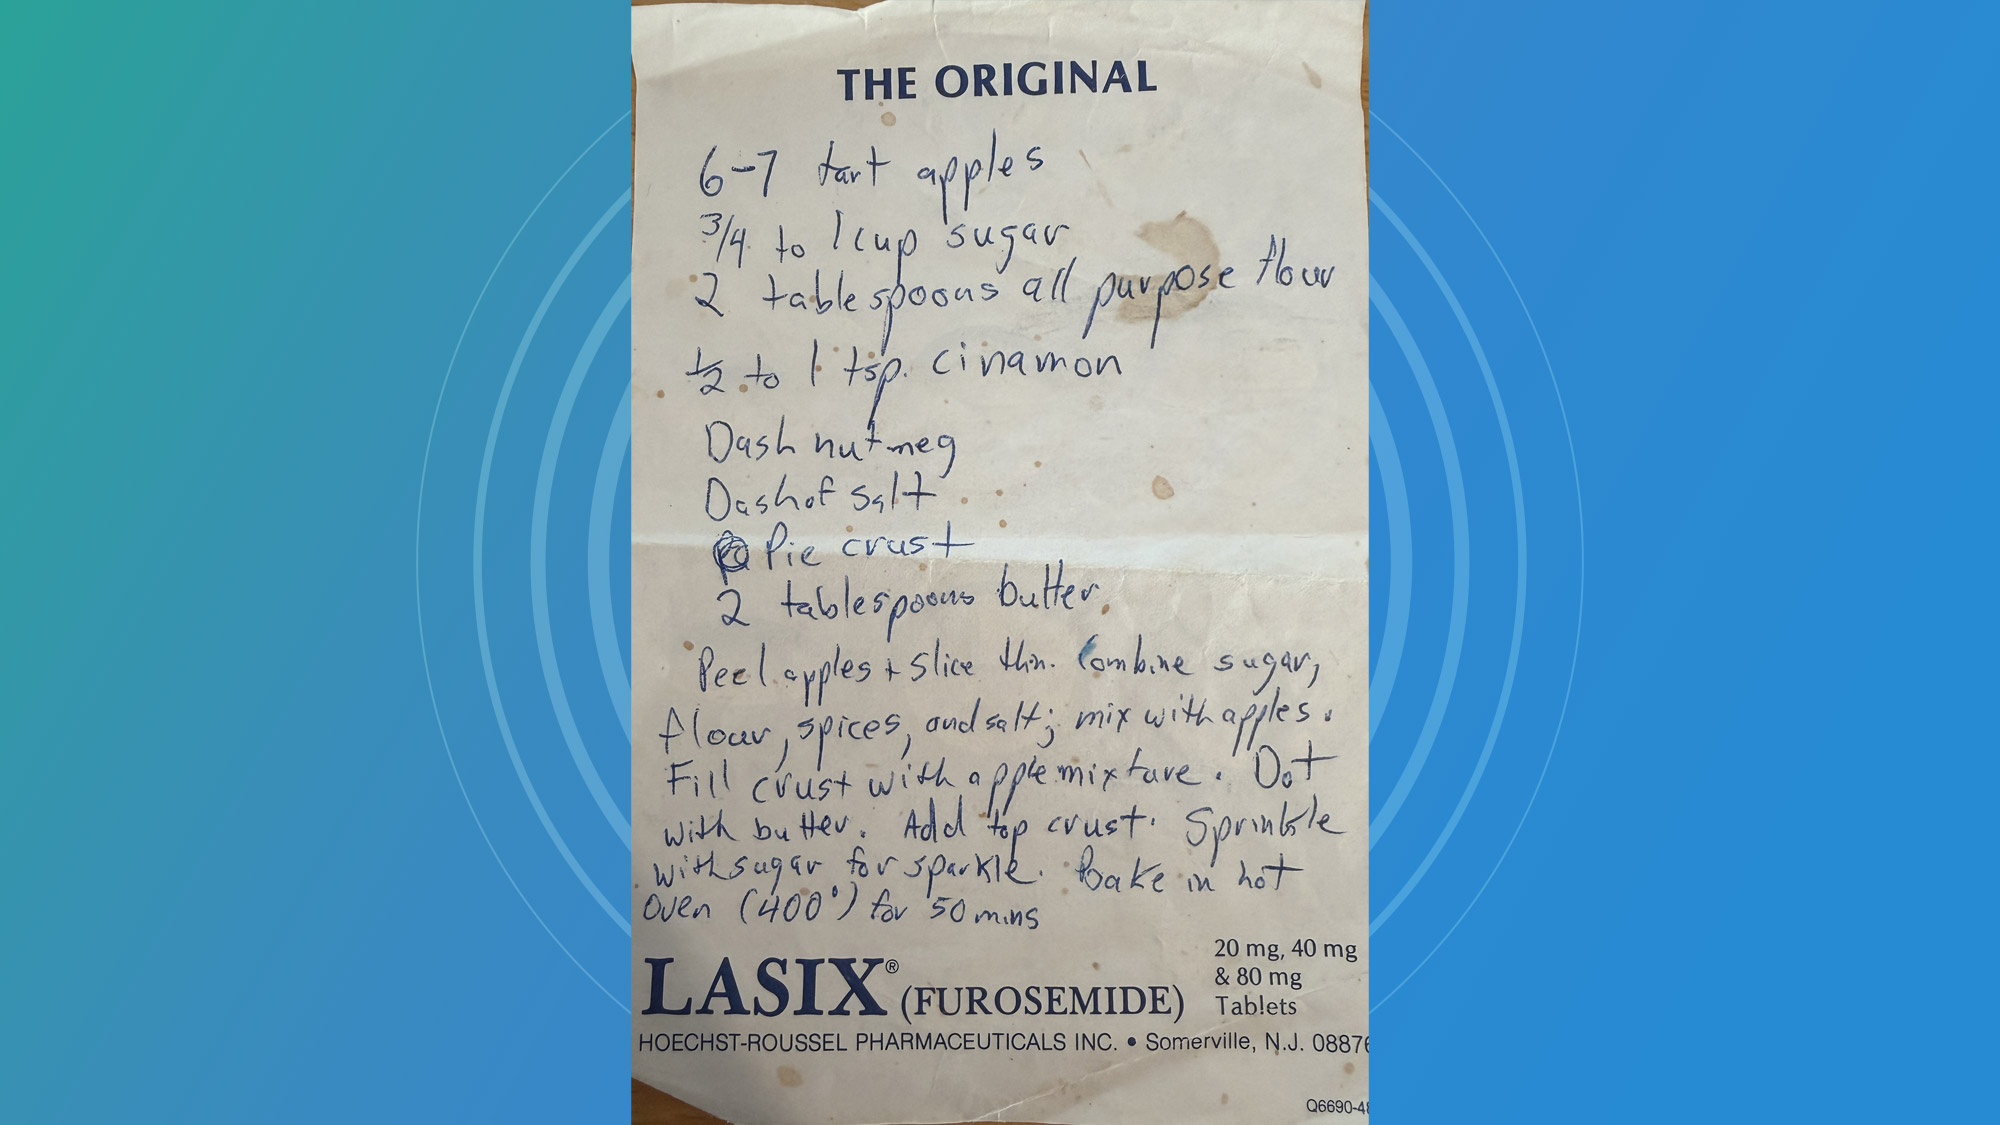 THE ORIGINAL
6-7 tart apples
3/4 to 1 cup sugar
2 tablespoons all purpose flour
1/2 to 1 tsp. cinamon
Dash nutmeg
Dash of salt
Pie crust
2 tablespoons butter
Peel apples + slice thin. Combine sugar,
flour, spices, and salt; mix with apples.
Fill crust with apple mixture. Dot
with butter. Add top crust. Sprinkle
with sugar for sparkle. Bake in hot
oven (400°) for 50 mins
LASIX® (FUROSEMIDE) 20 mg, 40 mg
& 80 mg
Tablets
HOECHST-ROUSSEL PHARMACEUTICALS INC. • Somerville, N.J. 08876
Q6690-48